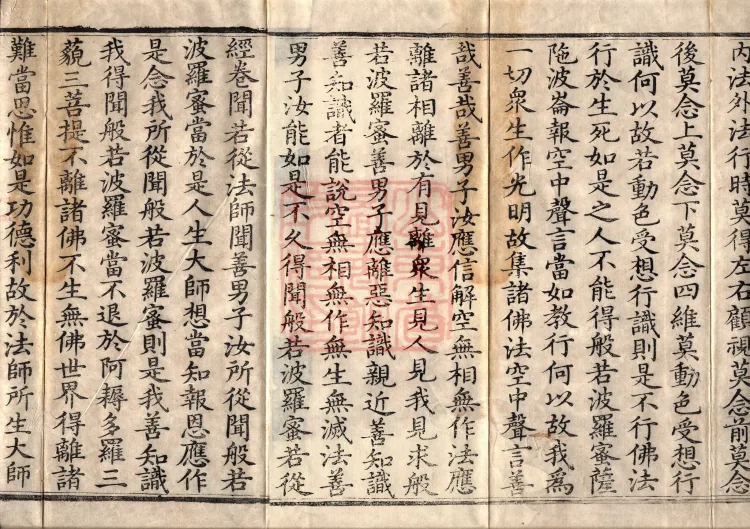 內法外法行時莫得左右顧視莫念前莫念
後莫念上莫念下莫念四維莫動色受想行
識何以故若動色受想行識則是不行佛法
行於生死如是之人不能得般若波羅蜜薩
陁波崙報空中聲言當如教行何以故我為
一切衆生作光明故集諸佛法空中聲言善
哉善哉善男子汝應信解空無相無作法應
離諸相離於有見離衆生見人見我見求般
若波羅蜜善男子應離惡知識親近善知識
善知識者能說空無相無作無生無滅法善
男子汝能如是不久得聞般若波羅蜜若從
經卷聞若從法師聞善男子汝所從聞般若
波羅蜜當於是人生大師想當知報恩應作
是念我所從聞般若波羅蜜則是我善知識
我得聞般若波羅蜜當不退於阿耨多羅三
藐三菩提不離諸佛不生無佛世界得離諸
難當思惟如是功德利故於法師所生大師